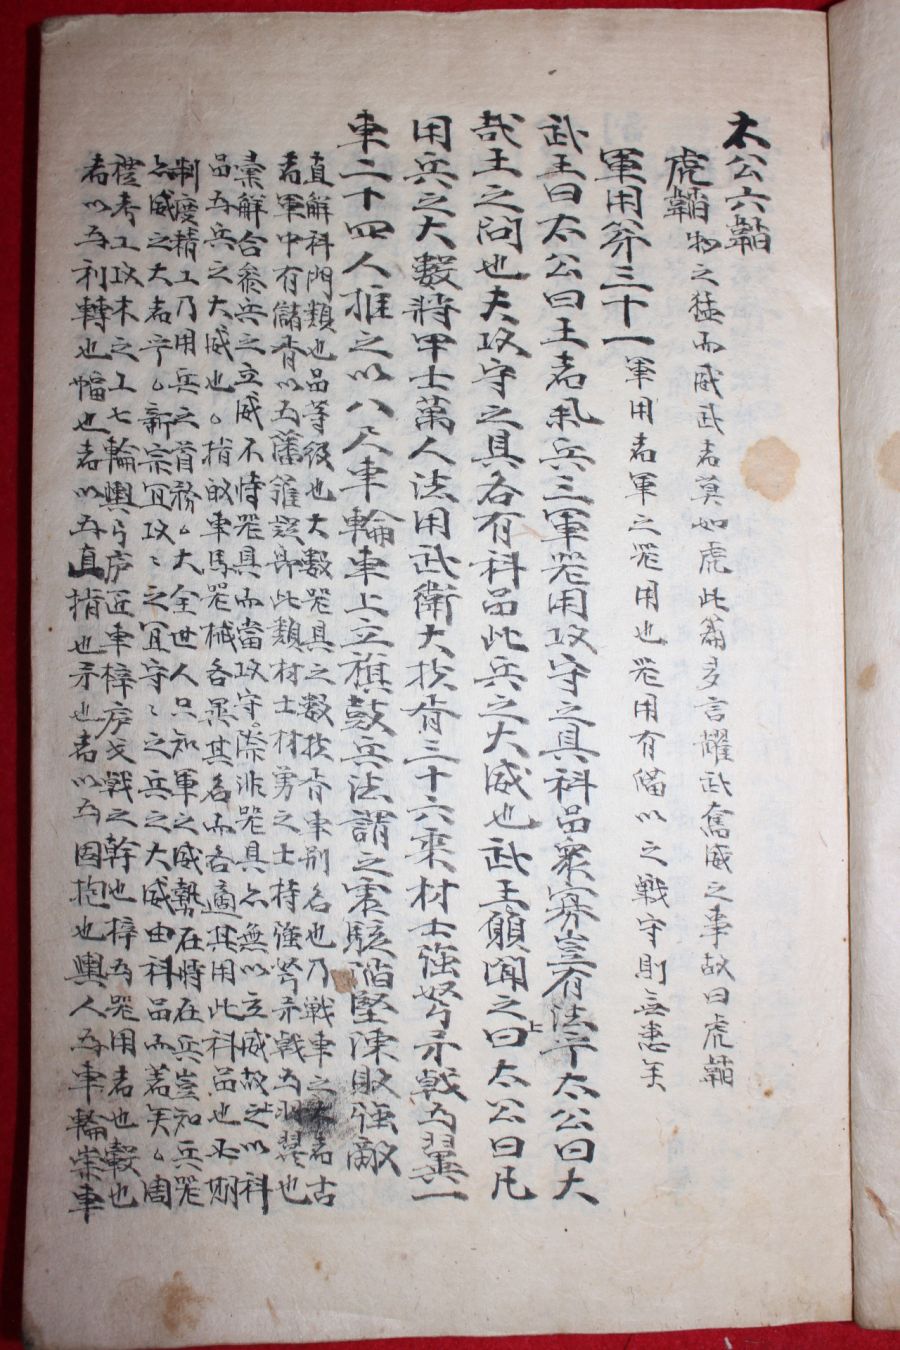 太公六韜
虎韜物之猛而威武者莫如虎此篇多言耀武奮威之事故曰虎韜
軍用第三十一軍用者軍之器用也器用有備以之戰守則無患矣
武王曰太公曰王者舉兵三軍器用攻守之具科品衆寡豈有法乎太公曰大
哉王之問也夫攻守之具各有科品此兵之大威也武王願聞之曰太公曰凡
用兵之大數將甲士萬人法用武衛大扶胥三十六乘材士強弩矛戟為翼一
車二十四人推之以八尺車輪車上立旗鼓兵法謂之震駭陷堅陳敗強敵
直解科門類也品等级也大數器具之數扶胥車別名也乃戰車之大者古
者軍中有儲胥以為藩籬疑即此類材士材勇之士持強弩矛戟為羽翼也
彙解合參兵之立威不恃器具而當攻守際非器具亦無以立威故以科
品為兵之大威也指敵車馬器械各異其名而各適其用此科品也不期
制度精工乃用兵之首務大全世人只知軍之威勢在將在兵豈知兵器
亦威之大者乎新宗宜攻之宜守之兵之大威由科品而著矣周
禮考工攻木之工七輪輿弓廬匠車梓廬戈戟之幹也梓為器用者也轂也
者以為利轉也幅也者以為直指也牙也者以為固抱也輿人為車輪崇車